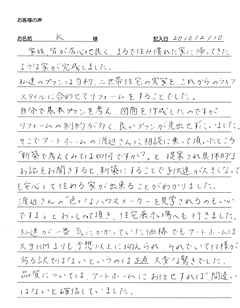 お客様の声
お名前 K 様 記入日 2010/12/10
家族皆が居心地良く まるで住み慣れた家に帰ってきた
ような家が完成しました。
私達のプランは当初、二世帯住宅の実家を これからのライフ
スタイルに合わせてリフォームをすることでした。
自分で基本プランを考え、図面を作成したのですが
リフォームのありきたりが多く、良いプランが見出せずにいました。
そこでアートホームの渡辺さんに相談に乗って頂いたところ
"新築で考えてみては如何ですか?"と 提案され具体的な
お話をお聞きすると、新築にすることで お友達が大きくなって
も安心して住める家が出来ることがわかりました。
渡辺さんの "色々なハウスメーカーを見学されるのもいい
ですよ。" とおっしゃって頂き、住宅展示場へも行きました。
私達が一番気にかかっていた価格でもアートホームは
大手HMよりも予想以上に抑えられ、それでいて仕様が
劣る訳ではないというのは正直 大変な驚きでした。
品質については、アートホームにお任せすれば、間違い
はないと確信していました。